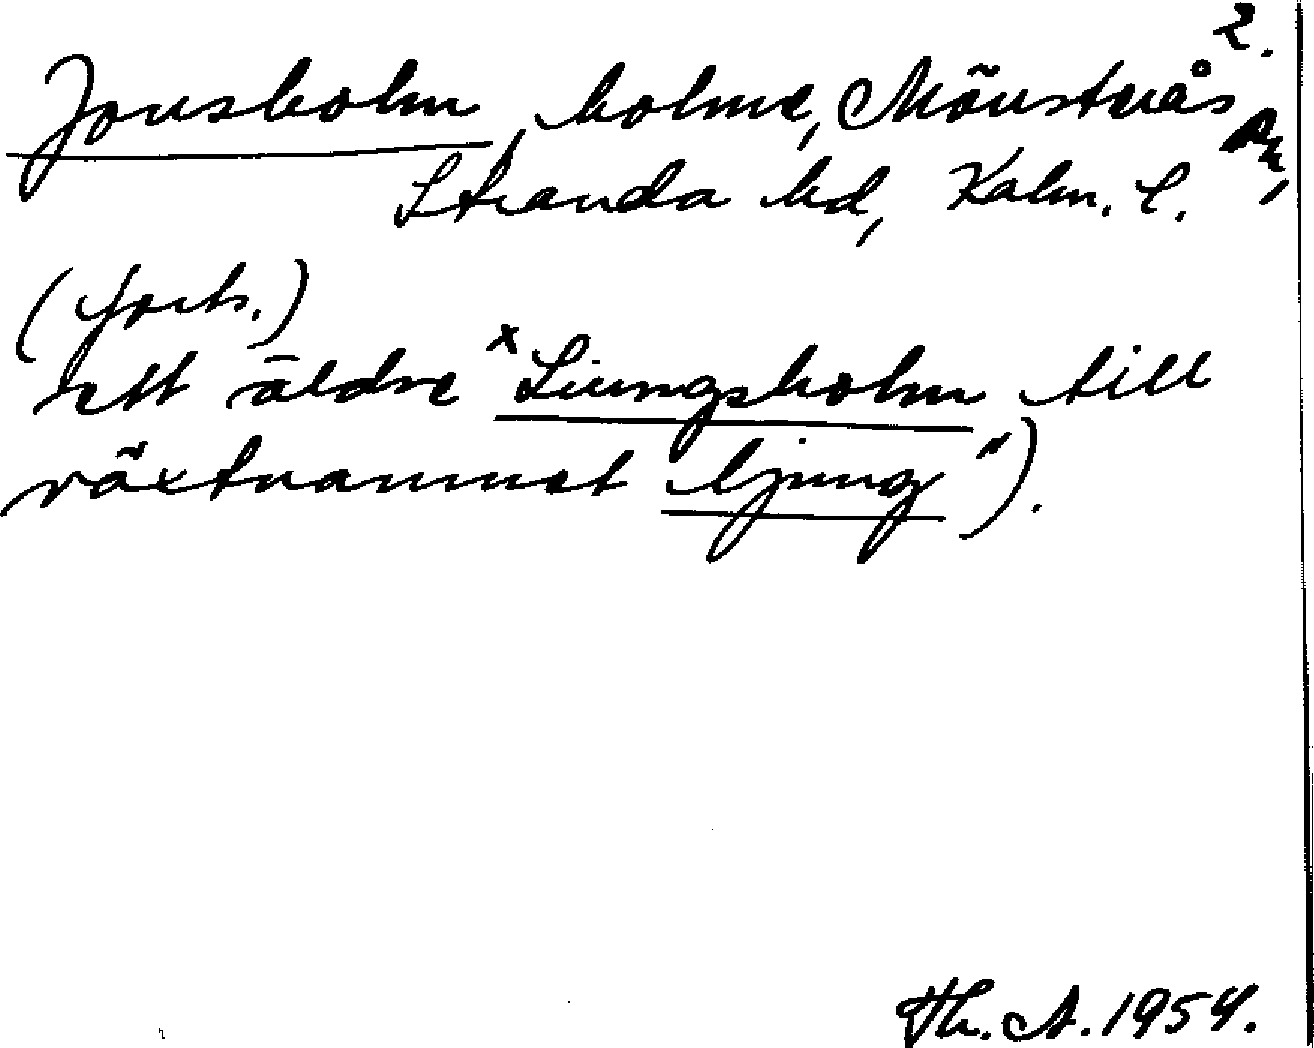 2.
Jonsholm, holme, Mönsterås sn,
Stranda hd, Kalm. l.
(forts.)
ett äldre ˣLiungsholm till
växtnamnet ljung").
Th. A. 1954.